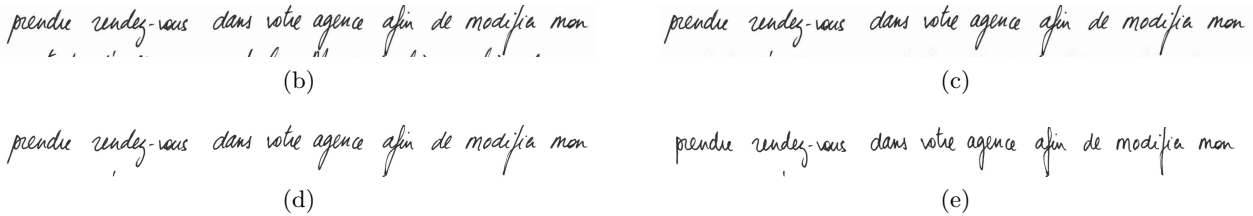 prendre rendez-vous dans votre agence afin de modifier mon
prendre rendez-vous dans votre agence afin de modifier mon
(b)
(c)
prendre rendez-vous dans votre agence afin de modifier mon
prendre rendez-vous dans votre agence afin de modifier mon
(d)
(e)